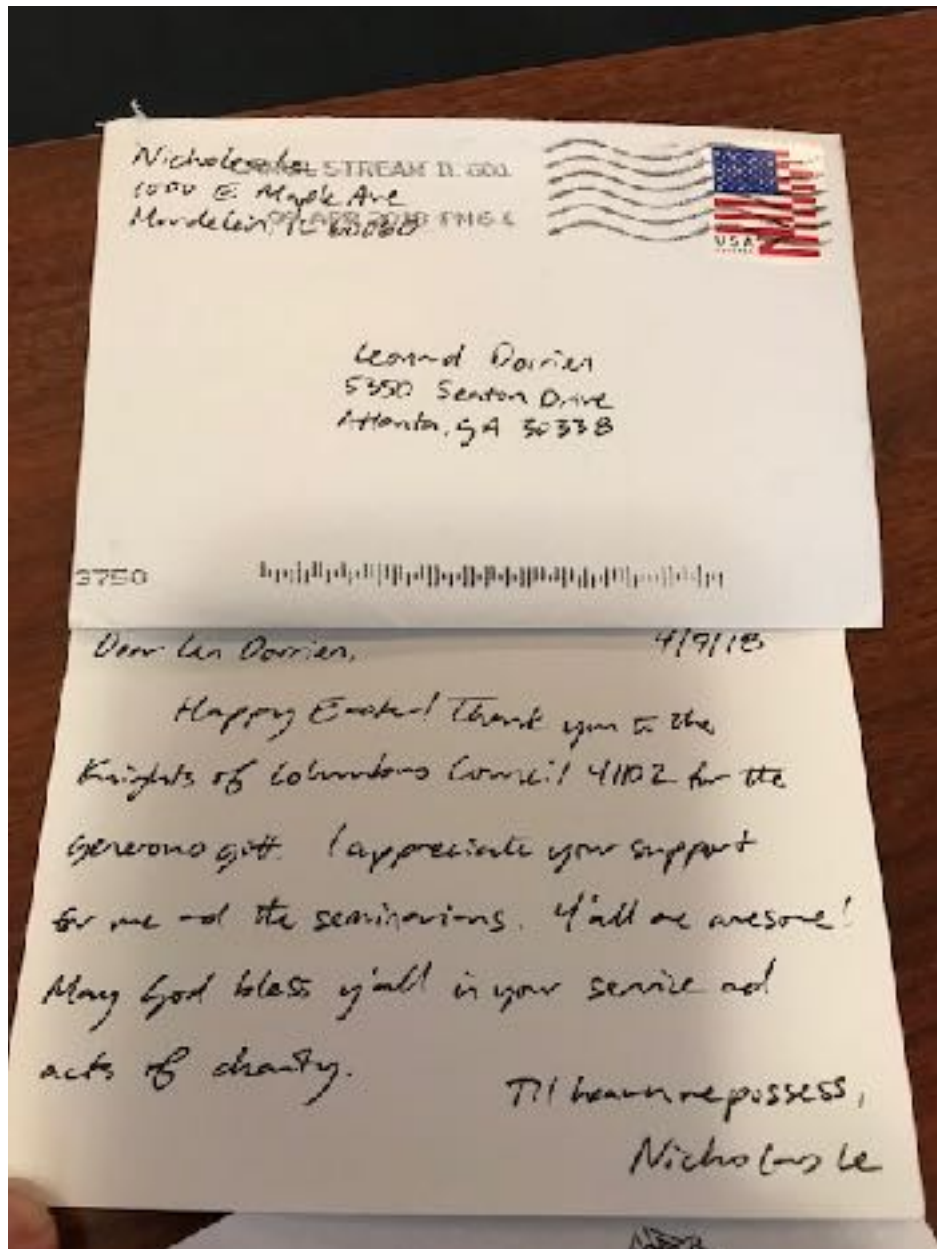 Nicholas Le
CAROL STREAM IL 600
1000 E. Maple Ave
09 APR 2018 PM 6 L
Mundelein, IL 60060
USA
Leonard Dorrien
5350 Seaton Drive
Atlanta, GA 30338
3750
Dear Len Dorrien,
4/9/18
Happy Easter! Thank you to the
Knights of Columbus Council 41102 for the
generous gift. I appreciate your support
for me and the seminarians. Y'all are awesome!
May God bless y'all in your service and
acts of charity.
Til heaven we possess,
Nicholas Le